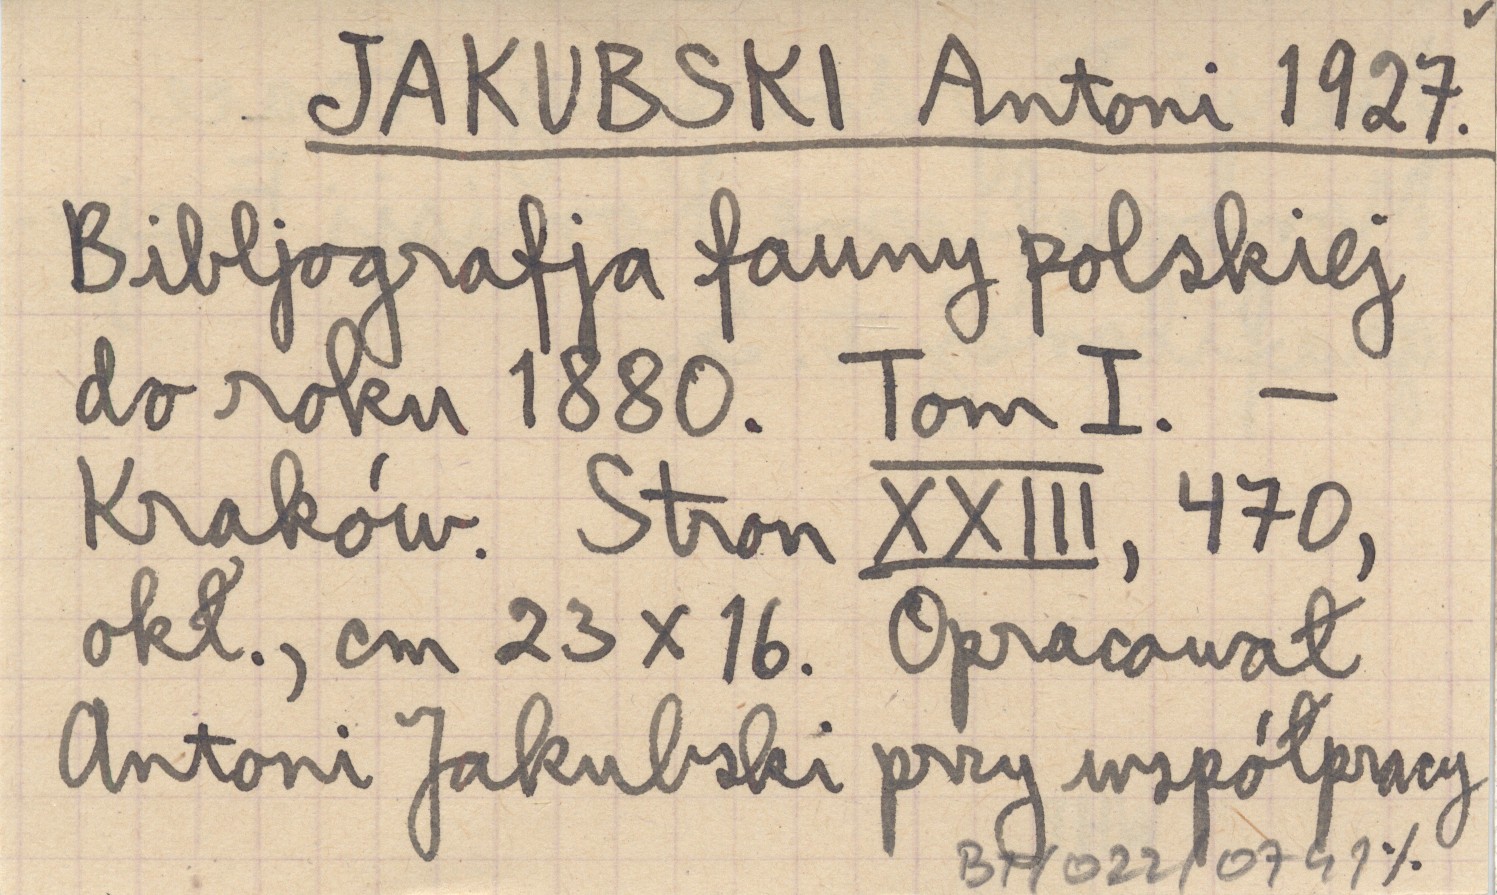 JAKUBSKI Antoni 1927.
Bibljografja fauny polskiej
do roku 1880. Tom I. —
Kraków. Stron XXIII, 470,
okł., cm 23 x 16. Opracował
Antoni Jakubski przy współpracy